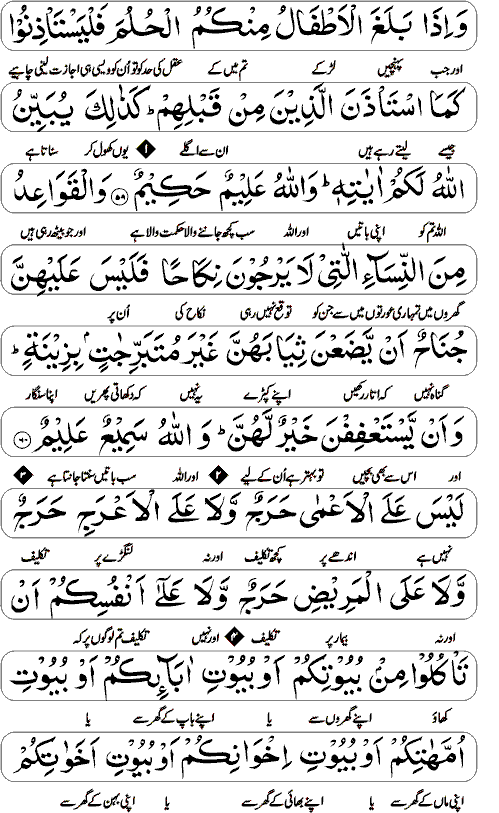 وَاِذَا بَلَغَ الْاَطْفَالُ مِنْكُمُ الْحُلُمَ فَلْيَسْتَاْذِنُوْا
اور جب پہنچیں لڑکے تم میں کے عقل کی حد کو تو اُن کو ویسی ہی اجازت لینی چاہیے
كَمَا اسْتَاْذَنَ الَّذِيْنَ مِنْ قَبْلِهِمْ ؕ كَذٰلِكَ يُبَيِّنُ
جیسے لیتے رہے ہیں ان سے اگلے ۱ یوں کھول کر سناتا ہے
اللّٰهُ لَكُمْ اٰيٰتِهٖ ؕ وَاللّٰهُ عَلِيْمٌ حَكِيْمٌ ﴿۵۹﴾ وَالْقَوَاعِدُ
اللہ تم کو اپنی باتیں اور اللہ سب کچھ جاننے والا حکمت والا ہے اور جو بیٹھ رہی ہیں
مِنَ النِّسَآءِ الّٰتِيْ لَا يَرْجُوْنَ نِكَاحًا فَلَيْسَ عَلَيْهِنَّ
گھروں میں تمہاری عورتوں میں سے جن کو توقع نہیں رہی نکاح کی اُن پر
جُنَاحٌ اَنْ يَّضَعْنَ ثِيَابَهُنَّ غَيْرَ مُتَبَرِّجٰتٍۭ بِزِيْنَةٍ ؕ
گناہ نہیں کہ اتار رکھیں اپنے کپڑے یہ نہیں کہ دکھاتی پھریں اپنا سنگار
وَاَنْ يَّسْتَعْفِفْنَ خَيْرٌ لَّهُنَّ ؕ وَاللّٰهُ سَمِيْعٌ عَلِيْمٌ ﴿۶۰﴾
اور اس سے بھی بچیں تو بہتر ہے اُن کے لیے ۲ اور اللہ سب باتیں سنتا جانتا ہے ۳
لَيْسَ عَلَى الْاَعْمٰى حَرَجٌ وَّلَا عَلَى الْاَعْرَجِ حَرَجٌ
نہیں ہے اندھے پر کچھ تکلیف اور نہ لنگڑے پر تکلیف
وَّلَا عَلَى الْمَرِيْضِ حَرَجٌ وَّلَا عَلٰٓى اَنْفُسِكُمْ اَنْ
اور نہ بیمار پر تکلیف ۴ اور نہیں تکلیف تم لوگوں پر کہ
تَاْكُلُوْا مِنْۢ بُيُوْتِكُمْ اَوْ بُيُوْتِ اٰبَآئِكُمْ اَوْ بُيُوْتِ
کھاؤ اپنے گھروں سے یا اپنے باپ کے گھر سے یا
اُمَّهٰتِكُمْ اَوْ بُيُوْتِ اِخْوَانِكُمْ اَوْ بُيُوْتِ اَخَوٰتِكُمْ
اپنی ماں کے گھر سے یا اپنے بھائی کے گھر سے یا اپنی بہن کے گھر سے